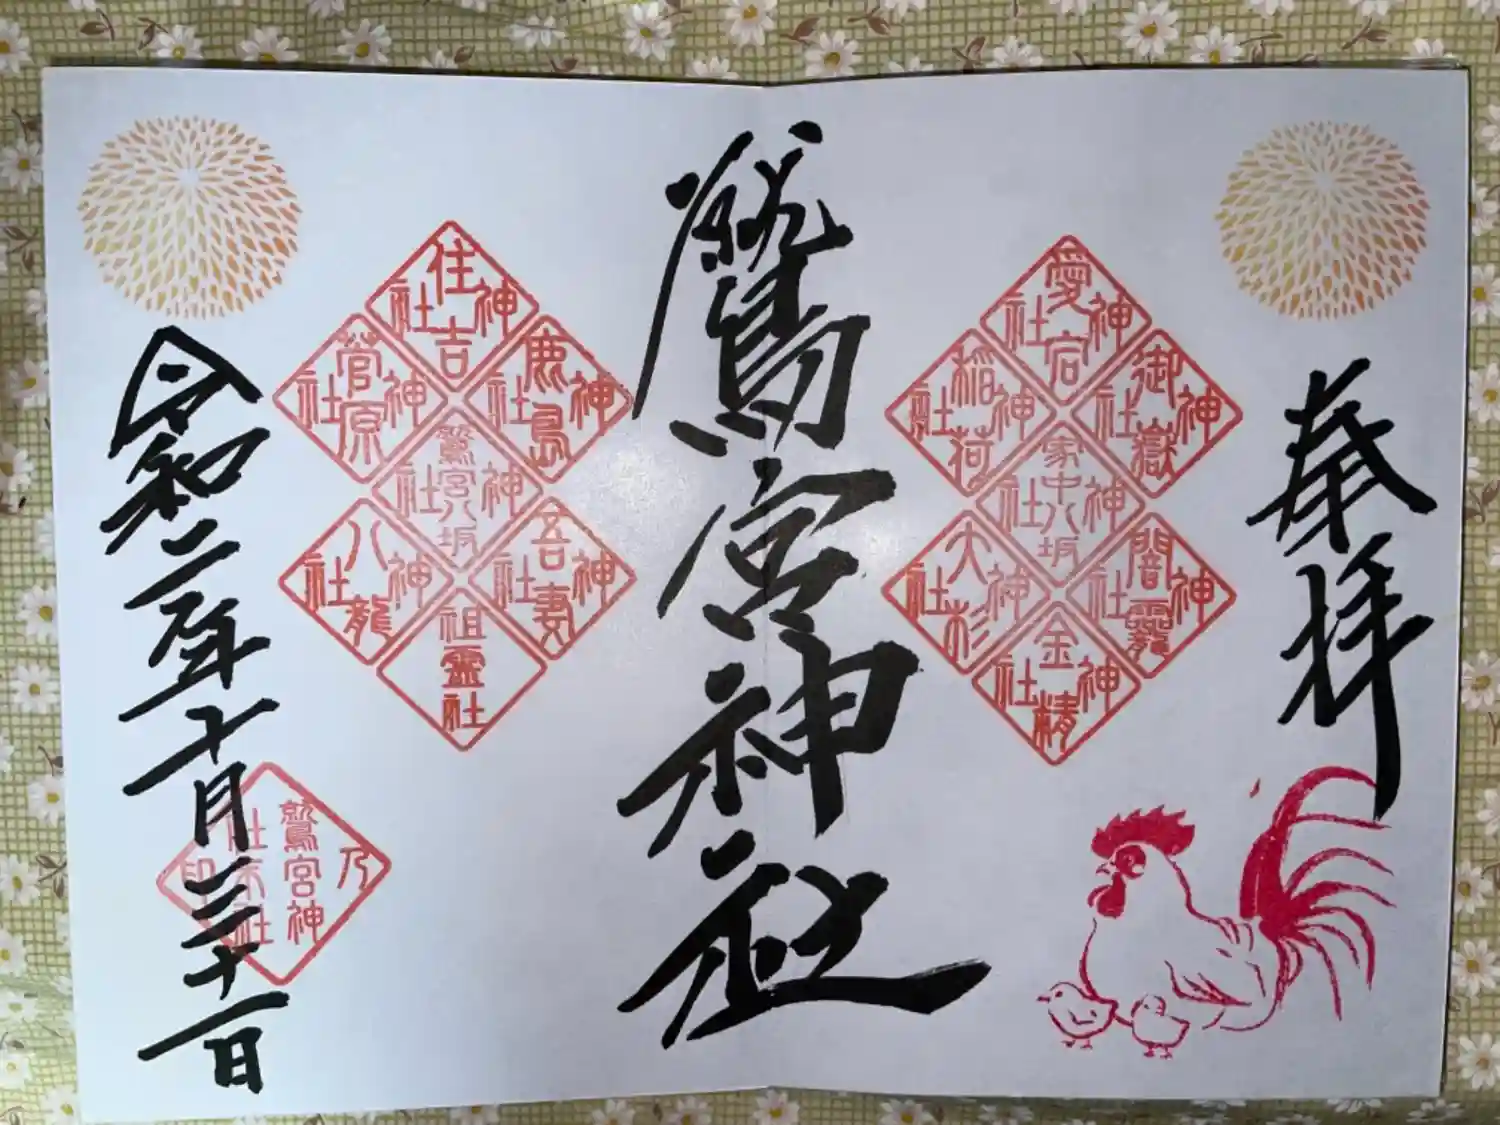 奉拝
愛宕神社
御嶽神社
稲荷神社
家中八坂神社
闇龗神社
大杉神社
金精神社
鷲宮神社
住吉神社
鹿島神社
菅原神社
鷲宮八坂神社
吾妻神社
八龍神社
祖霊社
令和二年十月三十一日
鷲宮神社末社乃印